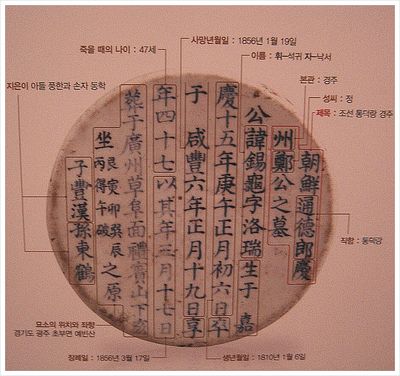 사망년월일 : 1856년 1월 19일
죽을 때의 나이 : 47세
이름 : 휘-석귀 자-낙서
본관 : 경주
지은이 아들 풍한과 손자 동학
성씨 : 정
제목 : 조선 통덕랑 경주
朝鮮通德郎慶
州鄭公之墓
公諱錫龜字洛瑞生于 嘉
慶十五年庚午正月初六日卒
于 咸豐六年正月十九日享
年四十七以其年三月十七日
葬于廣州草阜面禮賓山下亥
坐 艮寅卯巽辰
丙得午破 之原
子豐漢孫東鶴
직함 : 통덕랑
묘소의 위치와 좌향
경기도 광주 초부면 예빈산
장례일 : 1856년 3월 17일
생년월일 : 1810년 1월 6일